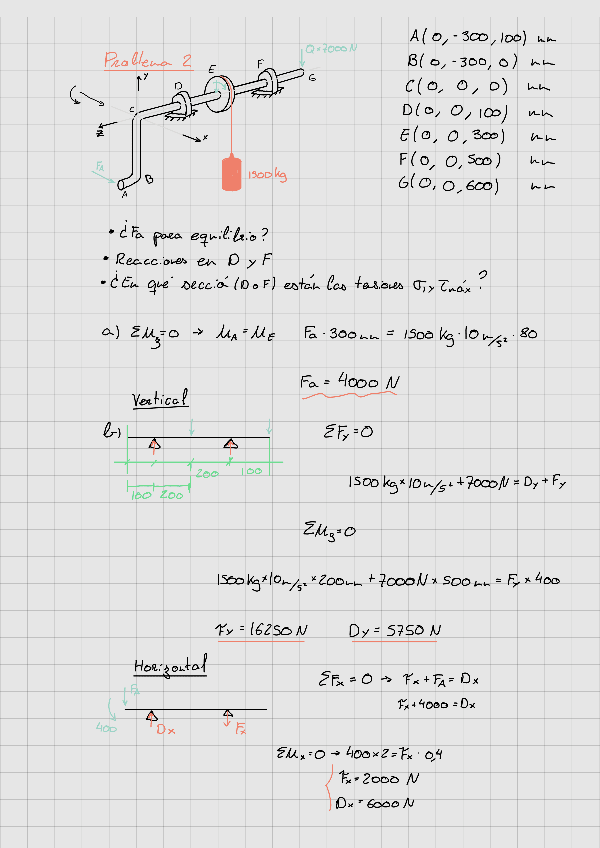 Problema 2
Q = 7000N
A(0, -300, 100) mm
B(0, -300, 0) mm
C(0, 0, 0) mm
D(0, 0, 100) mm
E(0, 0, 300) mm
F(0, 0, 500) mm
G(0, 0, 600) mm
y
E
F
G
D
C
z
x
FA
B
A
1500 kg
• ¿Fa para equilibrio?
• Reacciones en D y F
• ¿En qué secció (D o F) están las tasiones σ1 y τmáx?
a) ΣMz=0 → MA = ME Fa · 300mm = 1500 kg · 10 m/s² · 80
Fa = 4000 N
Vertical
b)
ΣFy=0
100 200 200 100
1500 kg × 10 m/s² + 7000N = Dy + Fy
ΣMz=0
1500 kg × 10 m/s² × 200mm + 7000N × 500 mm = Fy × 400
Fy = 16250 N Dy = 5750 N
Horizontal
ΣFx = 0 → Fx + FA = Dx
Fx + 4000 = Dx
FA
400
Dx
Fx
ΣMx=0 → 400×2 = Fx · 0,4
Fx = 2000 N
Dx = 6000 N